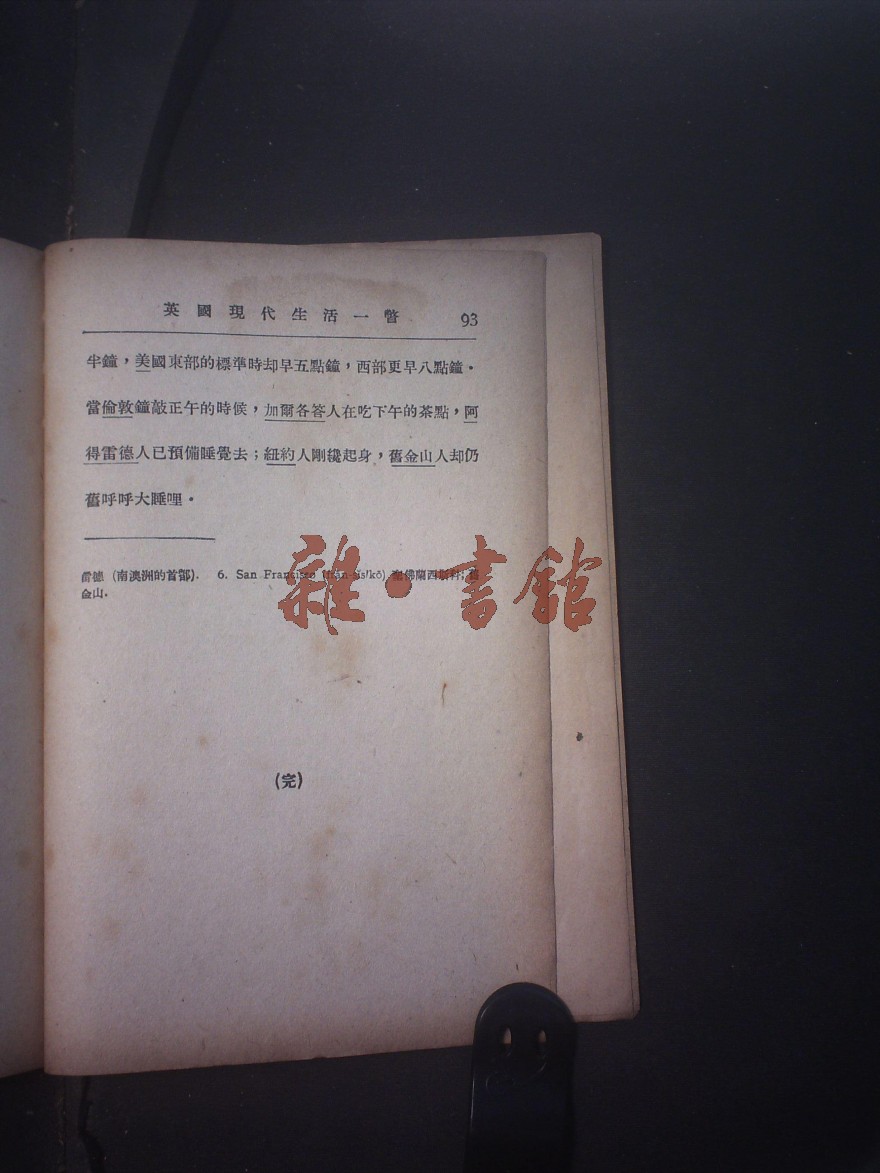 英國現代生活一瞥 93
半鐘，美國東部的標準時却早五點鐘，西部更早八點鐘。
當倫敦鐘敲正午的時候，加爾各答人在吃下午的茶點，阿
得雷德人已預備睡覺去；紐約人剛纔起身，舊金山人却仍
舊呼呼大睡哩。
雷德 (南澳洲的首部). 6. San Francisco (frăn-sĭs'kō) 聖佛蘭西斯科; 舊
金山.
雜·書館
(完)